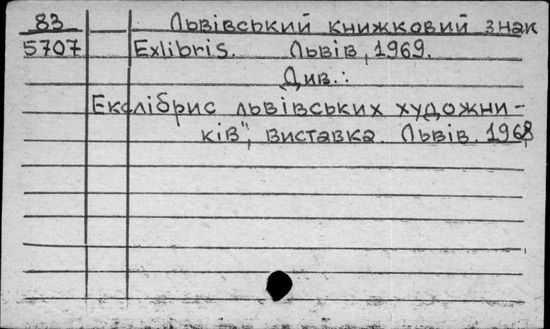 83 Львівський книжковий знак
5707 Exlibris. Львів, 1969.
Див.:
Екслібрис львівських художни-
ків", виставка. Львів. 1968